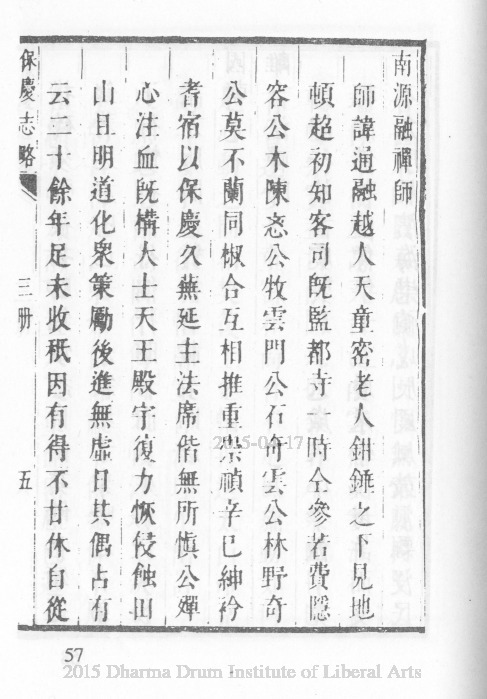 南源融禪師
師諱通融越人天童密老人鉗錘之下見地
頓超初知客司旣監都寺一時仝參若費隱
容公木陳忞公牧雲門公石奇雲公林野奇
公莫不蘭同椒合互相推重崇禎辛巳紳衿
耆宿以保慶久蕪延主法席偕無所愼公殫
心注血旣構大士天王殿宇復力恢侵蝕山
山且明道化衆策勵後進無虛日其偶占有
云二十餘年足未收秖因有得不甘休自從
保慶志略 三册 五
2015-04-17
57
2015 Dharma Drum Institute of Liberal Arts